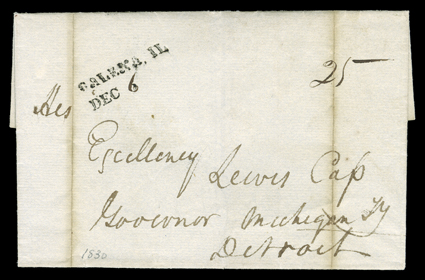 GALENA, IL
DEC 6
25
His
Excellency
Lewis Caſs
Goovernor Michigan Ty
Detroit
1830